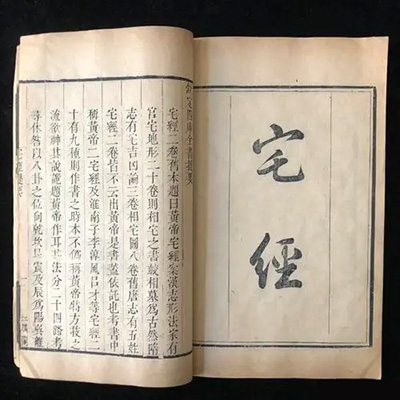 宅經
欽定四庫全書提要
宅經二卷舊本題曰黃帝宅經案漢志形法家有
宮宅地形二十卷則相宅之書較相墓爲古然隋
志有宅吉凶論三卷相宅圖八卷舊唐志有五姓
宅經二卷皆不云出黃帝是書蓋依託也考書中
稱黃帝二宅經及淮南子李淳風呂才等宅經二
十有九種則作書之時本不僞稱黃帝特方技之
流欲神其說詭題黃帝作耳其法分二十四路考
尋休咎以八卦之位向乾坎艮震及辰爲陽巽離
宅經提要